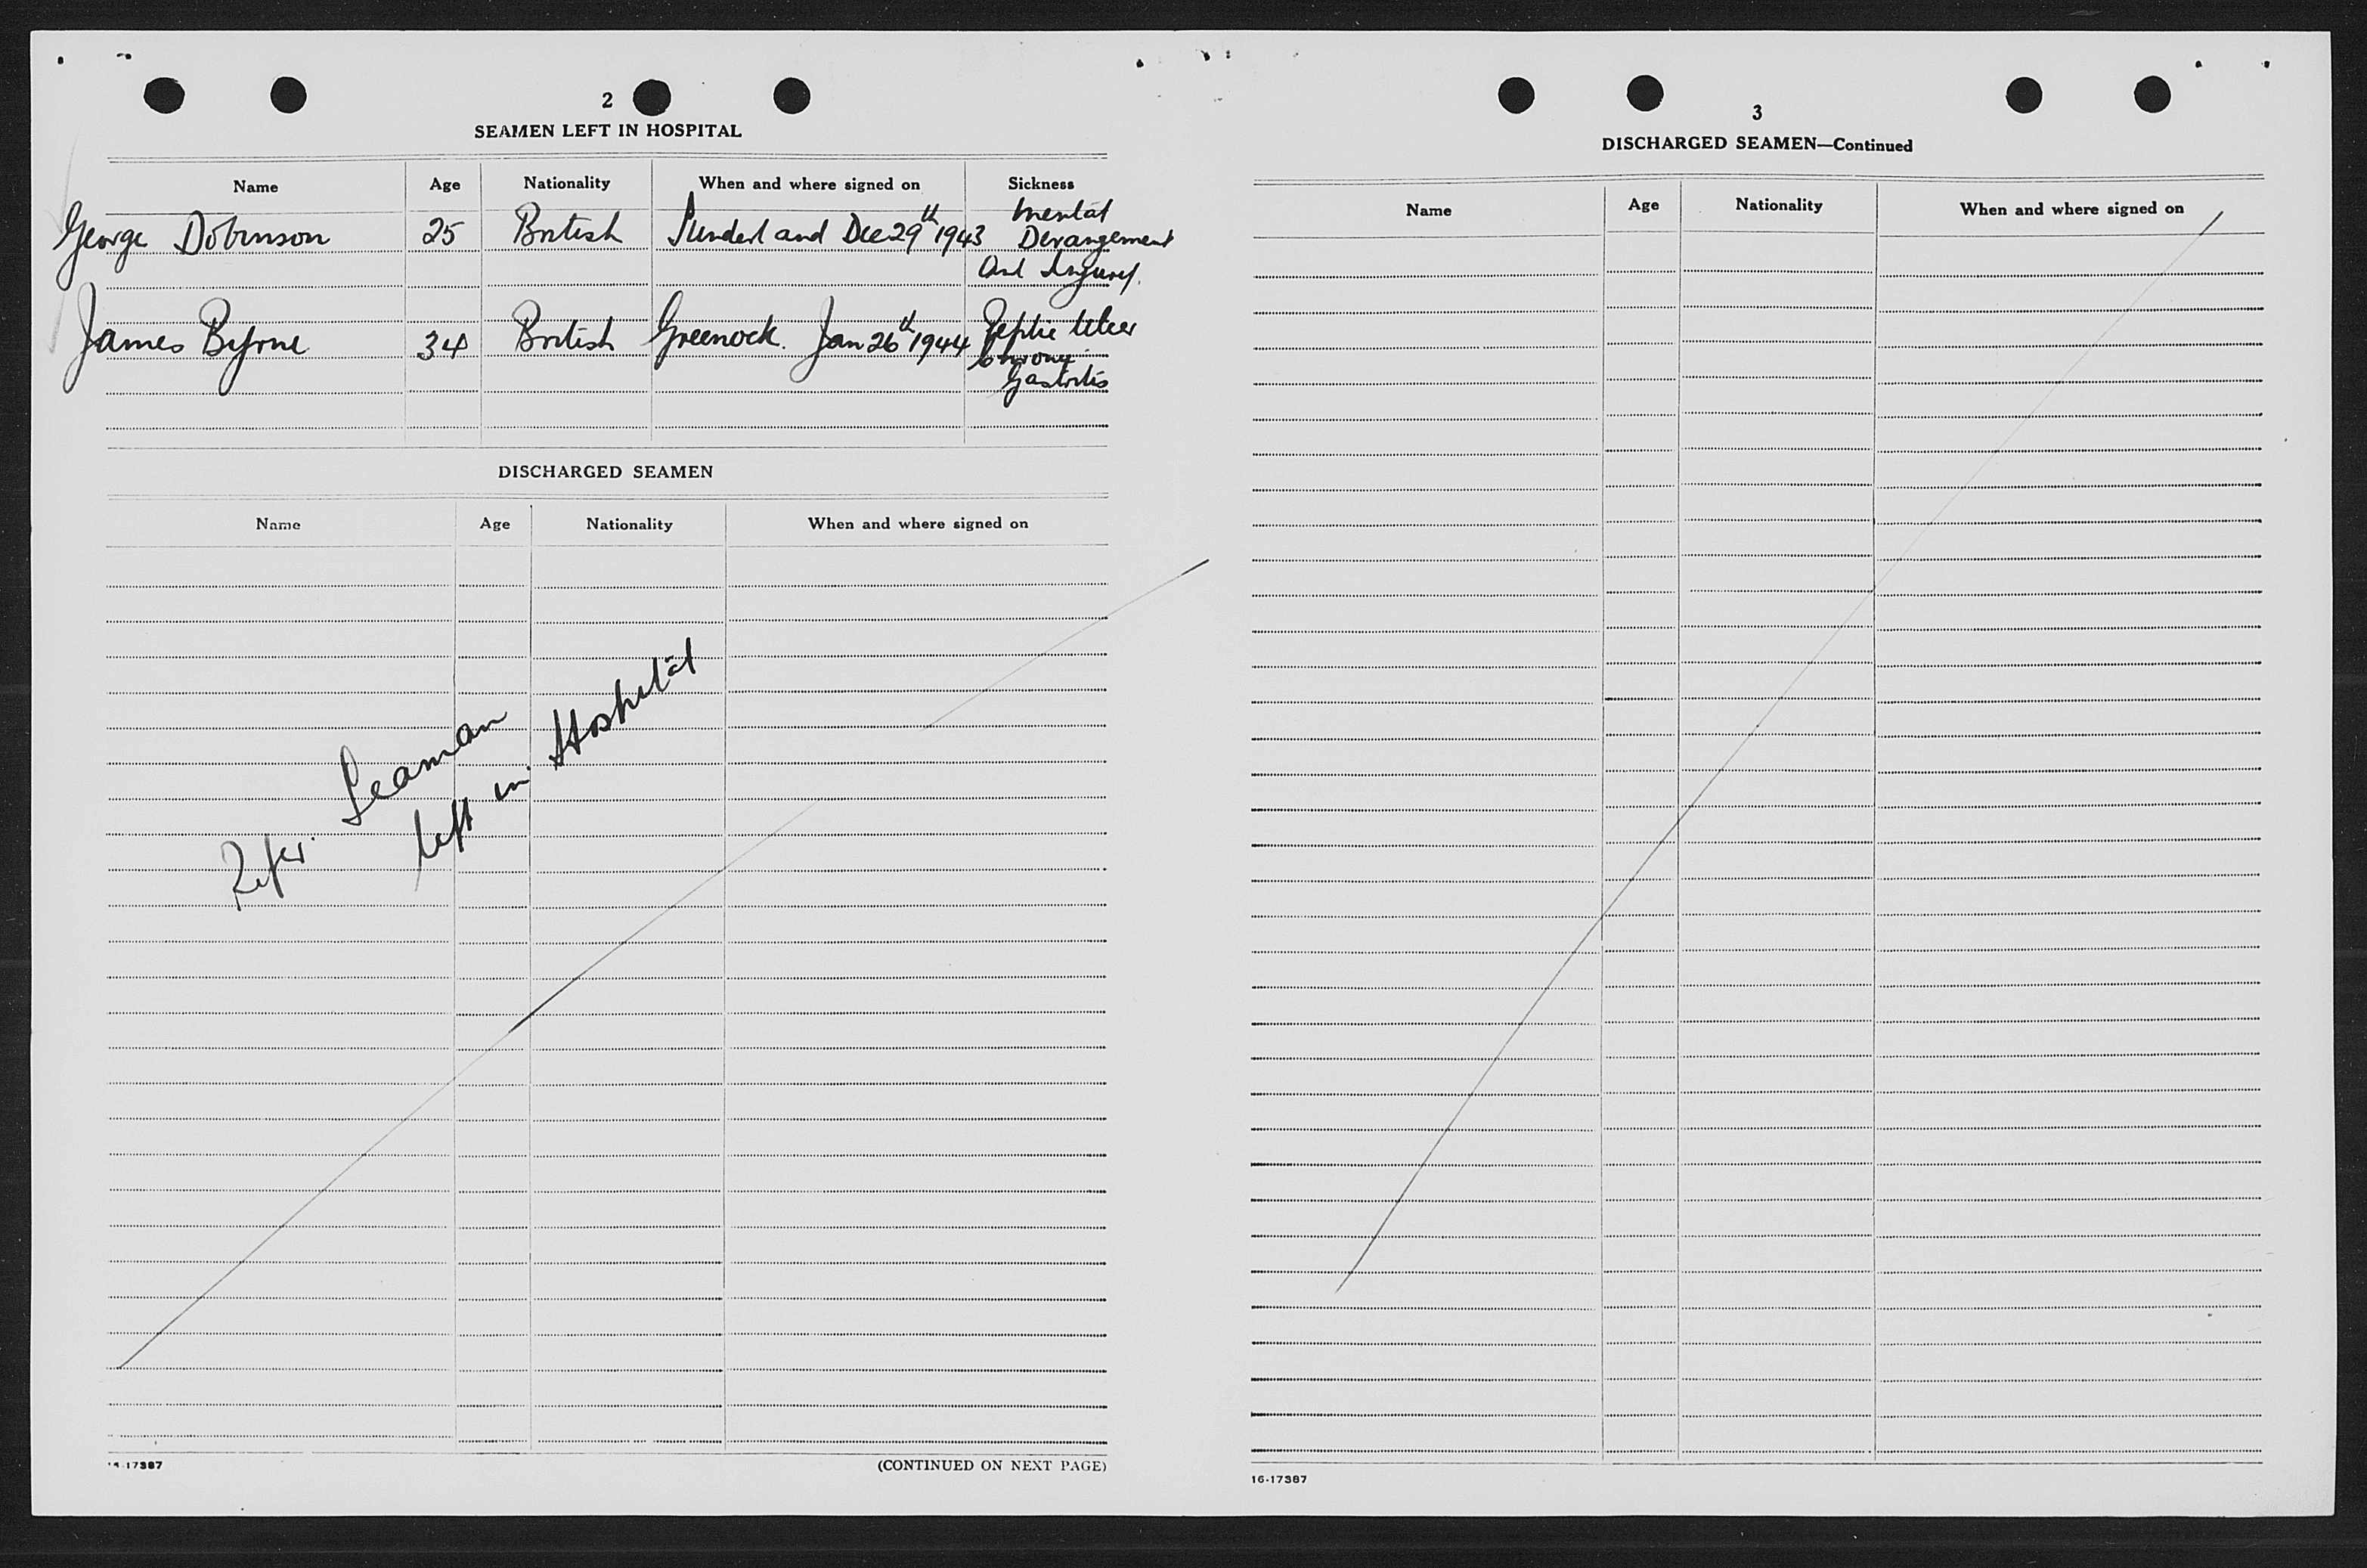 2
SEAMEN LEFT IN HOSPITAL
Name Age Nationality When and where signed on Sickness
George Dobinson 25 British Sunderland Dec 29th 1943 Mental
Derangement
and Injury.
James Byrne 34 British Greenock. Jan 26th 1944 Peptic Ulcer
Chronic
Gastritis
DISCHARGED SEAMEN
Name Age Nationality When and where signed on
Refer. Seaman
left in Hospital
16-17387
(CONTINUED ON NEXT PAGE)
3
DISCHARGED SEAMEN—Continued
Name Age Nationality When and where signed on
16-17387